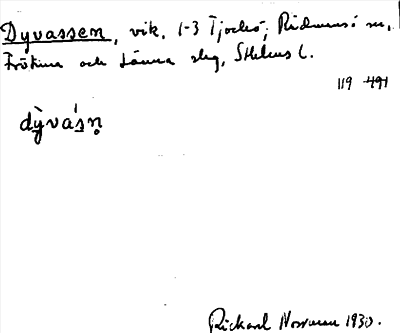 Dyvassen, vik, 1-3 Tjockö, Rådmansö sn,
Frötuna och Länna slg, Sthlms l.
119 491
dỳvásn̥
Rickard Norrman 1930.